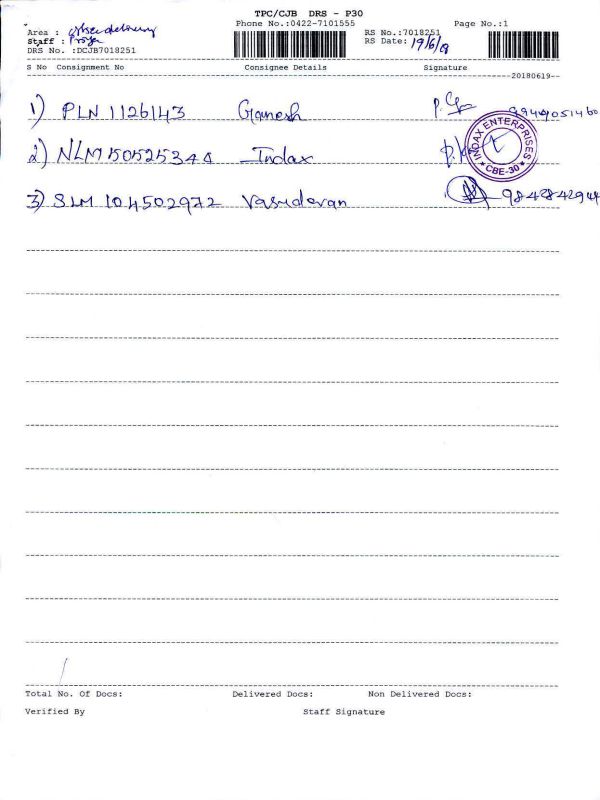 TPC/CJB DRS - P30
Phone No.:0422-7101555 Page No.:1
Area :
Staff :
DRS No. :DCJB7018251
RS No.:7018251
RS Date: 19/6/18
S No Consignment No Consignee Details Signature
20180619
1) PLN 1126143 Ganesh 9944051460
2) NLM 150525344 Indax
INDAX ENTERPRISES
★ CBE-30 ★
3) SLM 104502972 Vasudevan 984284294
Total No. Of Docs: Delivered Docs: Non Delivered Docs:
Verified By Staff Signature